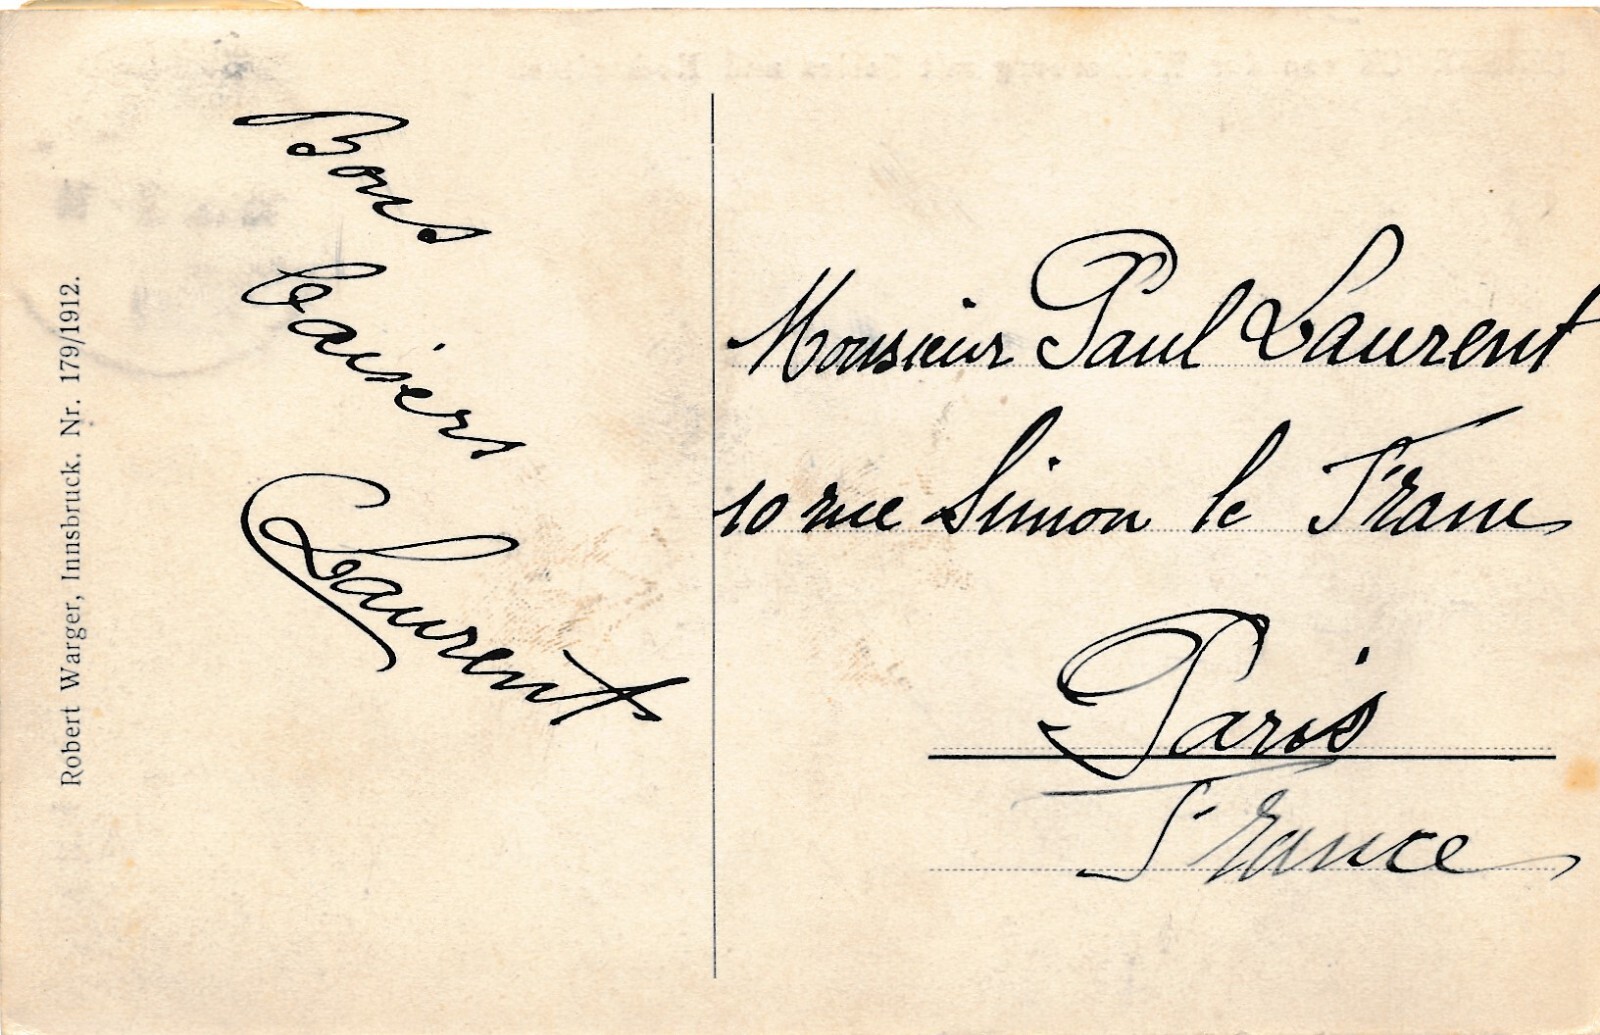 Robert Warger, Innsbruck. Nr. 179/1912.
Bons
baisers
Laurent
Monsieur Paul Laurent
10 rue Simon le Franc
Paris
France